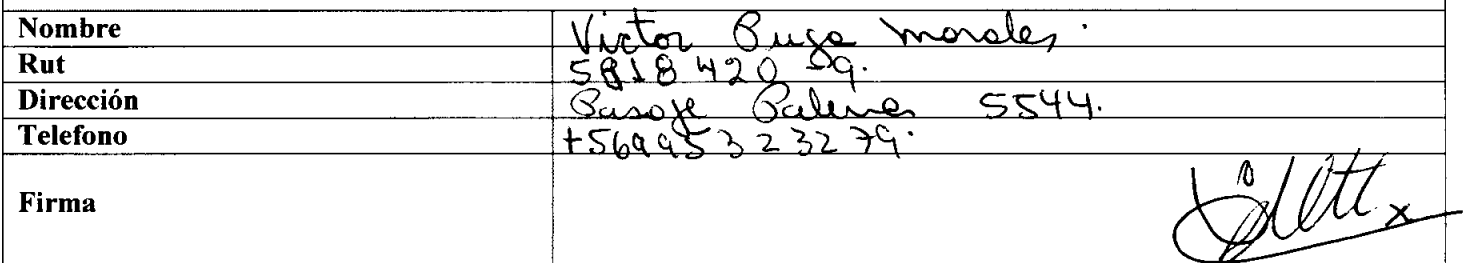 Nombre Victor Puga Morales.
Rut 5818420-9.
Dirección Pasaje 5544.
Telefono +56995323279.
Firma